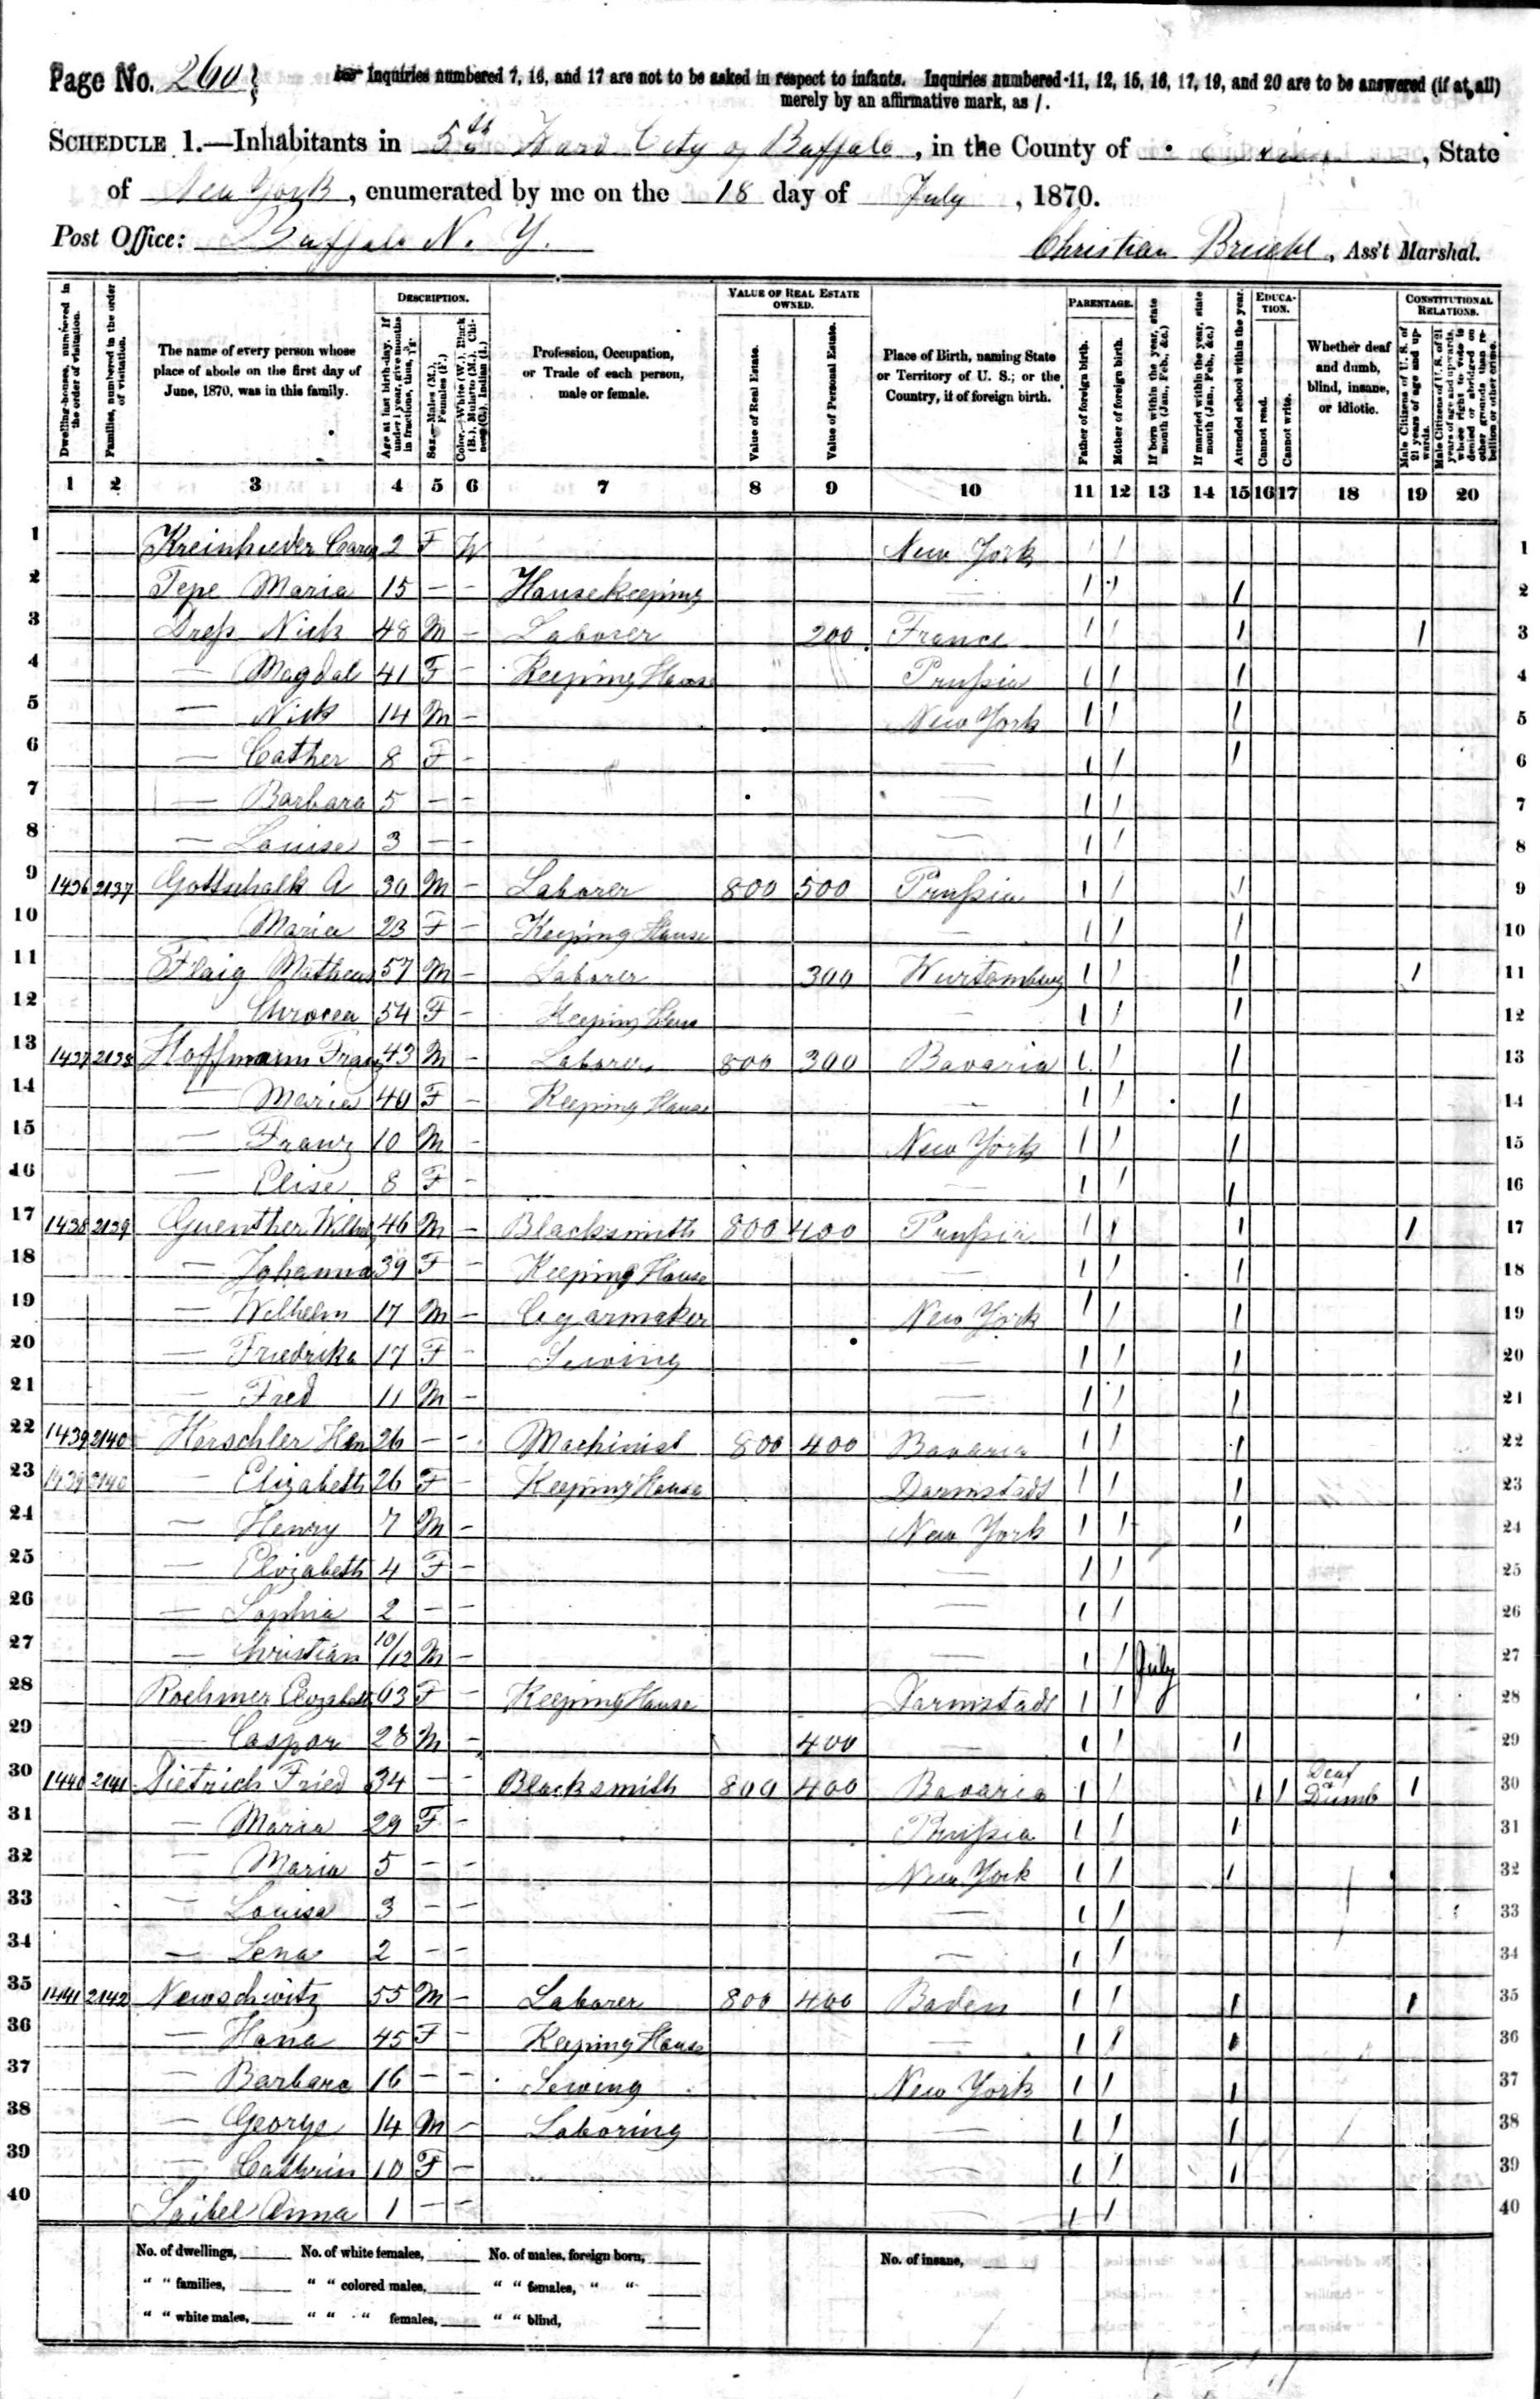 Page No. 260
Inquiries numbered 7, 16, and 17 are not to be asked in respect to infants. Inquiries numbered 11, 12, 15, 16, 17, 19, and 20 are to be answered (if at all)
merely by an affirmative mark, as /.
SCHEDULE 1.—Inhabitants in 5th Ward City of Buffalo, in the County of, State
of New York, enumerated by me on the 18 day of July, 1870.
Post Office: Buffalo N. Y.
Christian, Ass't Marshal.
Dwelling-houses, numbered in the order of visitation.
Families, numbered in the order of visitation.
The name of every person whose place of abode on the first day of June, 1870, was in this family.
DESCRIPTION.
Age at last birth-day. If under 1 year, give months in fractions, thus, 3/12.
Sex.—Males (M.), Females (F.)
Color.—White (W.), Black (B.), Mulatto (M.), Chinese (C.), Indian (I.)
Profession, Occupation, or Trade of each person, male or female.
VALUE OF REAL ESTATE OWNED.
Value of Real Estate.
Value of Personal Estate.
Place of Birth, naming State or Territory of U. S.; or the Country, if of foreign birth.
PARENTAGE.
Father of foreign birth.
Mother of foreign birth.
If born within the year, state month (Jan., Feb., &c.)
If married within the year, state month (Jan., Feb., &c.)
Attended school within the year.
EDUCATION.
Cannot read.
Cannot write.
Whether deaf and dumb, blind, insane, or idiotic.
CONSTITUTIONAL RELATIONS.
Male Citizens of U. S. of 21 years of age and upwards.
Male Citizens of U. S. of 21 years of age and upwards, whose right to vote is denied or abridged on other grounds than rebellion or other crime.
1 2 3 4 5 6 7 8 9 10 11 12 13 14 15 16 17 18 19 20
1 2 F W New York / / 1
2 Tepe Maria 15 — — Housekeeping — / / / 2
3 Nick 48 M — Laborer 200 France / / / / 3
4 — Magdal 41 F — Keeping House Prussia / / / 4
5 — Nick 14 M — New York / / / 5
6 — Cather 8 F — — / / / 6
7 — Barbara 5 — — — / / 7
8 — Louise 3 — — — / / 8
9 1436 2137 Gottschalk A 30 M — Laborer 800 500 Prussia / / / 9
10 Maria 23 F — Keeping House — / / / 10
11 Flaig Matheus 57 M — Laborer 300 Wurtemburg / / / / 11
12 54 F — Keeping House — / / / 12
13 1437 2138 Hoffmann Franz 43 M — Laborer 800 300 Bavaria / / / 13
14 — Maria 40 F — Keeping House — / / / 14
15 — Franz 10 M — New York / / / 15
16 — Elise 8 F — — / / / 16
17 1438 2139 Guenther Wilhelm 46 M — Blacksmith 800 400 Prussia / / / / 17
18 — Johanna 39 F — Keeping House — / / / 18
19 — Wilhelm 17 M — Cigarmaker New York / / / 19
20 — Friedrika 17 F — Sewing — / / / 20
21 — Fred 11 M — — / / / 21
22 1439 2140 Herschler Hen 26 — — Machinist 800 400 Bavaria / / / 22
23 1439 2140 — Elizabeth 26 F — Keeping House Darmstadt / / / 23
24 — Henry 7 M — New York / / / 24
25 — Elizabeth 4 F — — / / 25
26 — Sophia 2 — — — / / 26
27 — Christian 10/12 M — — / / July 27
28 Roehmer Elizabeth 63 F — Keeping House Darmstadt / / 28
29 — Caspar 28 M — 400 — / / / 29
30 1440 2141 Dietrich Fried 34 — — Blacksmith 800 400 Bavaria / / / / Deaf & Dumb / 30
31 — Maria 29 F — Prussia / / / 31
32 — Maria 5 — — New York / / / 32
33 — Louisa 3 — — — / / 33
34 — Lena 2 — — — / / 34
35 1441 2142 Newschwitz 55 M — Laborer 800 400 Baden / / / / 35
36 — Hana 45 F — Keeping House — / / / 36
37 — Barbara 16 — — Sewing New York / / / 37
38 — George 14 M — Laboring — / / / 38
39 — Cathrin 10 F — — / / / 39
40 Saibel Anna 1 — — — / / 40
No. of dwellings, No. of white females, No. of males, foreign born, No. of insane,
" " families, " " colored males, " " females, " "
" " white males, " " " females, " " blind,